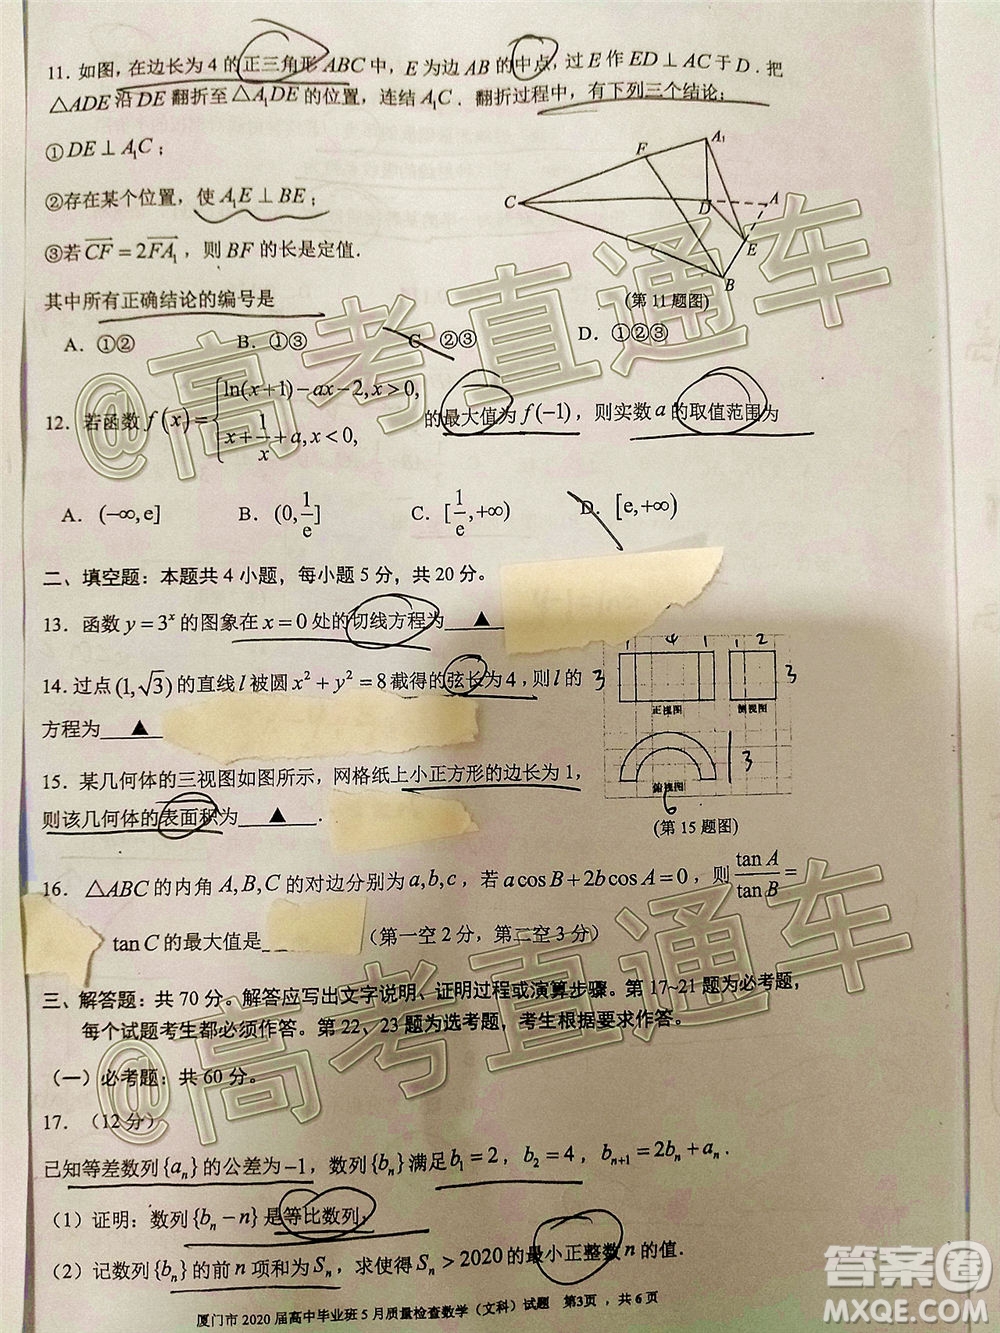 11．如图，在边长为4的正三角形ABC中，E为边AB的中点，过E作ED⊥AC于D．把
△ADE沿DE翻折至△A₁DE的位置，连结A₁C．翻折过程中，有下列三个结论：
①DE⊥A₁C；
②存在某个位置，使A₁E⊥BE；
③若CF=2FA₁，则BF的长是定值．
其中所有正确结论的编号是
A．①② B．①③ C ②③ D．①②③
C F A₁ D A E B
(第11题图)
12．若函数f(x)={ln(x+1)−ax−2,x>0, x+1/x+a,x<0, 的最大值为f(−1)，则实数a的取值范围为
A．(−∞,e] B．(0,1/e] C．[1/e,+∞) D．[e,+∞)
二、填空题：本题共4小题，每小题5分，共20分。
13．函数y=3ˣ的图象在x=0处的切线方程为 ▲
14．过点(1,√3)的直线l被圆x²+y²=8截得的弦长为4，则l的
方程为 ▲
15．某几何体的三视图如图所示，网格纸上小正方形的边长为1，
则该几何体的表面积为 ▲ ．
1 4 1 1 2
3 3
正视图 侧视图
3
俯视图
6
(第15题图)
16．△ABC的内角A,B,C的对边分别为a,b,c，若acosB+2bcosA=0，则tanA/tanB=
tanC的最大值是 （第一空2分，第二空3分）
三、解答题：共70分。解答应写出文字说明、证明过程或演算步骤。第17~21题为必考题，
每个试题考生都必须作答。第22、23题为选考题，考生根据要求作答。
（一）必考题：共60分。
17．（12分）
已知等差数列{aₙ}的公差为−1，数列{bₙ}满足b₁=2，b₂=4，bₙ₊₁=2bₙ+aₙ．
（1）证明：数列{bₙ−n}是等比数列；
（2）记数列{bₙ}的前n项和为Sₙ，求使得Sₙ>2020的最小正整数n的值．
厦门市2020届高中毕业班5月质量检查数学（文科）试题 第3页，共6页
@高考直通车
@高考直通车
答案圈
MXQE.COM